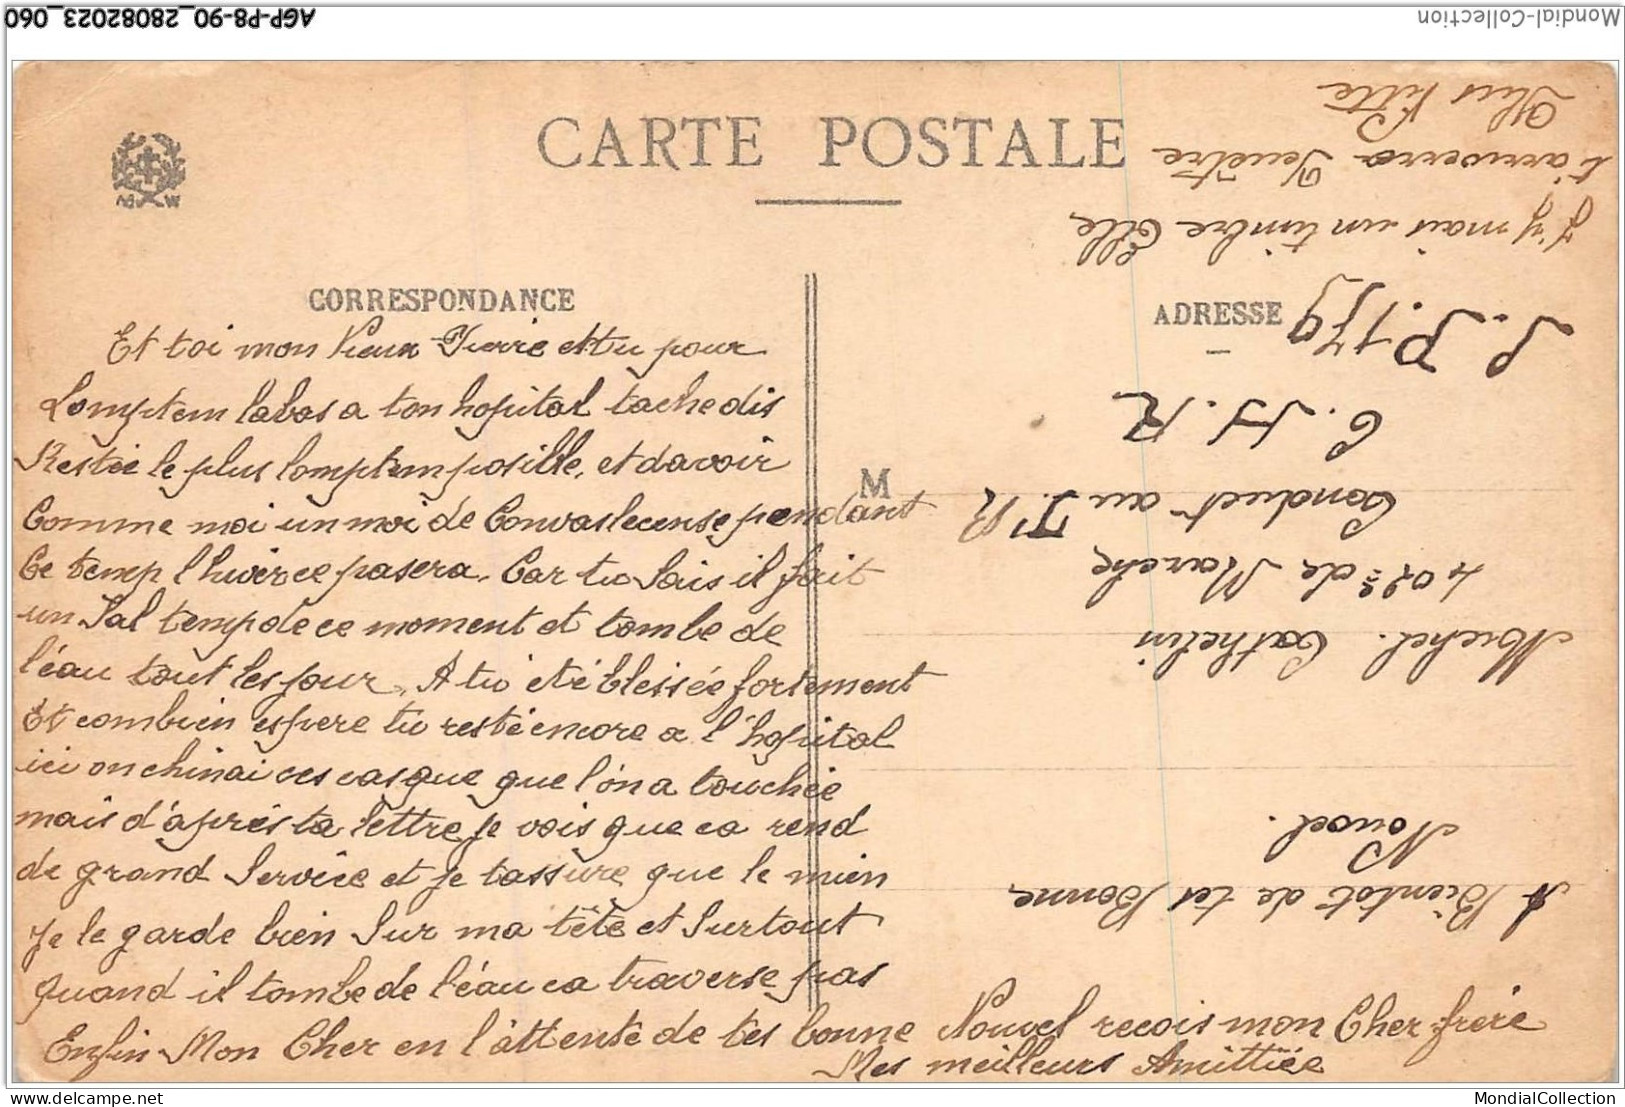 AGP-P8-90_28082023_060
Mondial-Collection
CARTE POSTALE
CORRESPONDANCE
ADRESSE
M
Et toi mon Vieux Pierre et tu pour
Lomptem labas a ton hopital tache dis
Restée le plus lomptem posille. et davoir
Comme moi un moi de Convaslecense pendant
Ce temp l'hiver ce pasera. Car tu sais il fait
un Sal temp de ce moment et tombe de
l'éau tout les jour. A tu été blessée fortement
Et combien espere tu resté encore a l'hopital
ici on chinai ces casque que l'on a touchée
mais d'après ta lettre je vois que ca rend
de grand Service et je tassure que le mien
Je le garde bien Sur ma tête et Surtout
quand il tombe de l'éau ca traverse pas
Enfin Mon Cher en l'attente de tes bonne Nouvel recois mon Cher frère
Mes meilleurs Amittiée
A Bientot de tes Bonne
Nouvel.
Michel. Cathelin
402e de Marche
Conduct au T. R
C. H. R
S. P. 179
J'y mais un timbre Elle
t'arrivera Peutêtre
Plus Vitte
MondialCollection